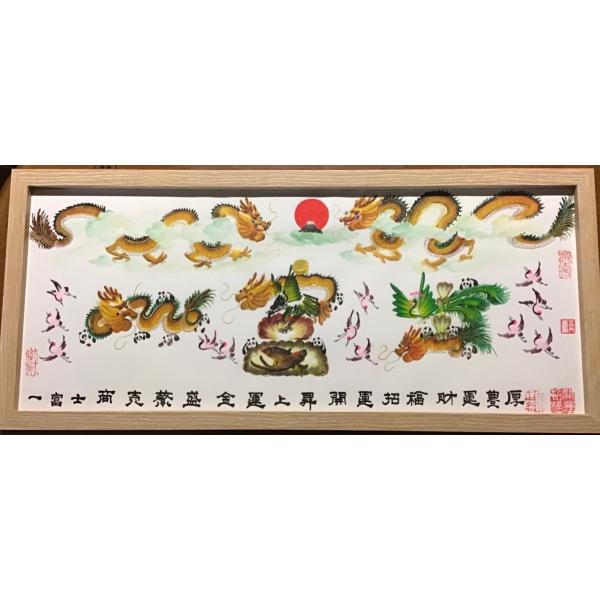 一富士商克繁盛金運上昇開運招福財運豊厚